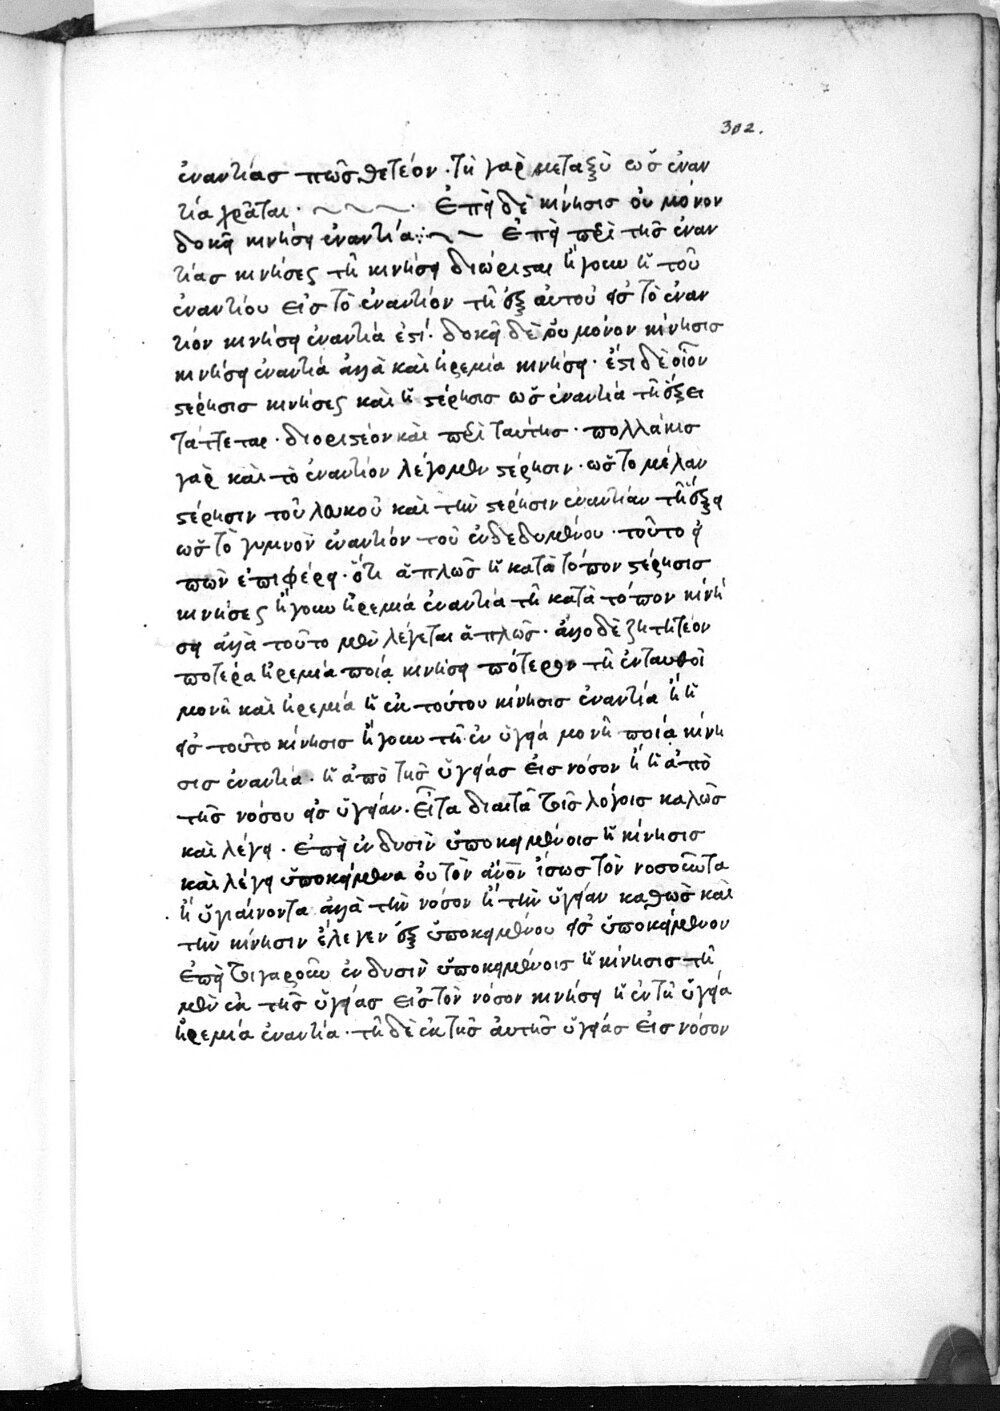 302.
ἐναντίας πῶς θετέον · τῇ γὰρ μεταξὺ ὡς ἐναν
τία χρᾶται · Ἐπεὶ δὲ κίνησις οὐ μόνον
δοκεῖ κινήσει ἐναντία: Ἐπεὶ περὶ τῆς ἐναν
τίας κινήσεως τῇ κινήσει διώρισται ἤγουν ἡ τοῦ
ἐναντίου εἰς τὸ ἐναντίον τῇ ἐξ αὐτοῦ εἰς τὸ ἐναν
τίον κινήσει ἐναντία ἐστί · δοκεῖ δὲ οὐ μόνον κίνησις
κινήσει ἐναντία ἀλλὰ καὶ ἠρεμία κινήσει · ἔστι δὲ οἷον
στέρησις κινήσεως καὶ ἡ στέρησις ὡς ἐναντία τῇ ἕξει
τάττεται · διοριστέον καὶ περὶ ταύτης · πολλάκις
γὰρ καὶ τὸ ἐναντίον λέγομεν στέρησιν · ὡς τὸ μέλαν
στέρησιν τοῦ λευκοῦ καὶ τὴν στέρησιν ἐναντίαν τῇ ἕξει
ὡς τὸ γυμνὸν ἐναντίον τοῦ ἐνδεδυμένου · τοῦτο εἰ
πὼν ἐπιφέρει · ὅτι ἁπλῶς ἡ κατὰ τόπον στέρησις
κινήσεως ἤγουν ἠρεμία ἐναντία τῇ κατὰ τόπον κινή
σει ἀλλὰ τοῦτο μὲν λέγεται ἁπλῶς · ἄλλο δὲ ζητητέον
ποτέρα ἠρεμία ποίᾳ κινήσει πότερον τῇ ἐνταυθοῖ
μονῇ καὶ ἠρεμίᾳ ἡ ἐκ τούτου κίνησις ἐναντία ἢ ἡ
εἰς τοῦτο κίνησις ἤγουν τῇ ἐν ὑγείᾳ μονῇ ποία κίνη
σις ἐναντία · ἡ ἀπὸ τῆς ὑγείας εἰς νόσον ἢ ἡ ἀπὸ
τῆς νόσου εἰς ὑγείαν · Εἶτα διαιτᾷ τοῖς λόγοις καλῶς
καὶ λέγει · ἐπεὶ ἐν δυσὶν ὑποκειμένοις ἡ κίνησις
καὶ λέγει ὑποκείμενα οὐ τὸν ἄνον ἴσως τὸν νοσοῦντα
ἢ ὑγιαίνοντα ἀλλὰ τὴν νόσον ἢ τὴν ὑγείαν καθὼς καὶ
τὴν κίνησιν ἔλεγεν ἐξ ὑποκειμένου εἰς ὑποκείμενον
ἐπεὶ τοιγαροῦν ἐν δυσὶν ὑποκειμένοις ἡ κίνησις τῇ
μὲν ἐκ τῆς ὑγείας εἰς τὸν νόσον κινήσει ἡ ἐν τῇ ὑγείᾳ
ἠρεμία ἐναντία · τῇ δὲ ἐκ τῆς αὐτῆς ὑγείας εἰς νόσον